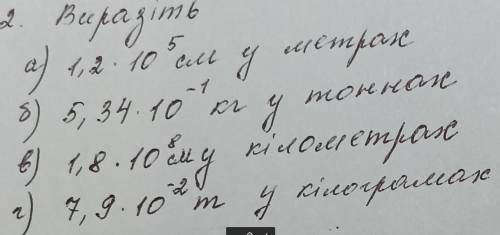 2. Виразіть
а) 1,2 · 10⁵ см у метрах
б) 5,34 · 10⁻¹ кг у тоннах
в) 1,8 · 10⁸ см у кілометрах
г) 7,9 · 10⁻² т у кілограмах